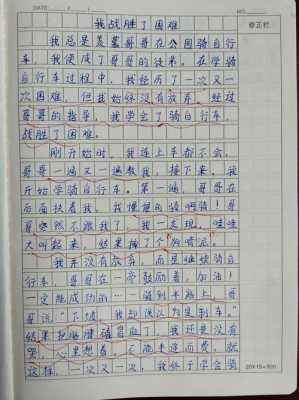 DATE
NO.
修正栏
我战胜了困难
我总是羡慕哥哥在公园骑自行
车，我便成了哥哥的徒弟。在学骑
自行车过程中，我经历了一次又一
次困难，但我始终没有放弃。经过
哥哥的指导，我学会了骑自行车，
战胜了困难。
刚开始时，我连上车都不会，
哥哥一遍又一遍教我，接下来，我
开始学骑自行车。第一遍，哥哥在
后面扶着我，我慢慢的骑啊骑！哥
哥突然不跟我了，我一发现，哇哇
大叫起来，结果摔了个"狗啃泥"。
我并没有放弃，而是继续骑自
行车，哥哥在一旁鼓励着，加油！
一定能成功的
哥说，"下坡，
结果把脑
哭，心里想着，不能半途而费，就
这样，一次又一次，我终于学会骑
20X15=300